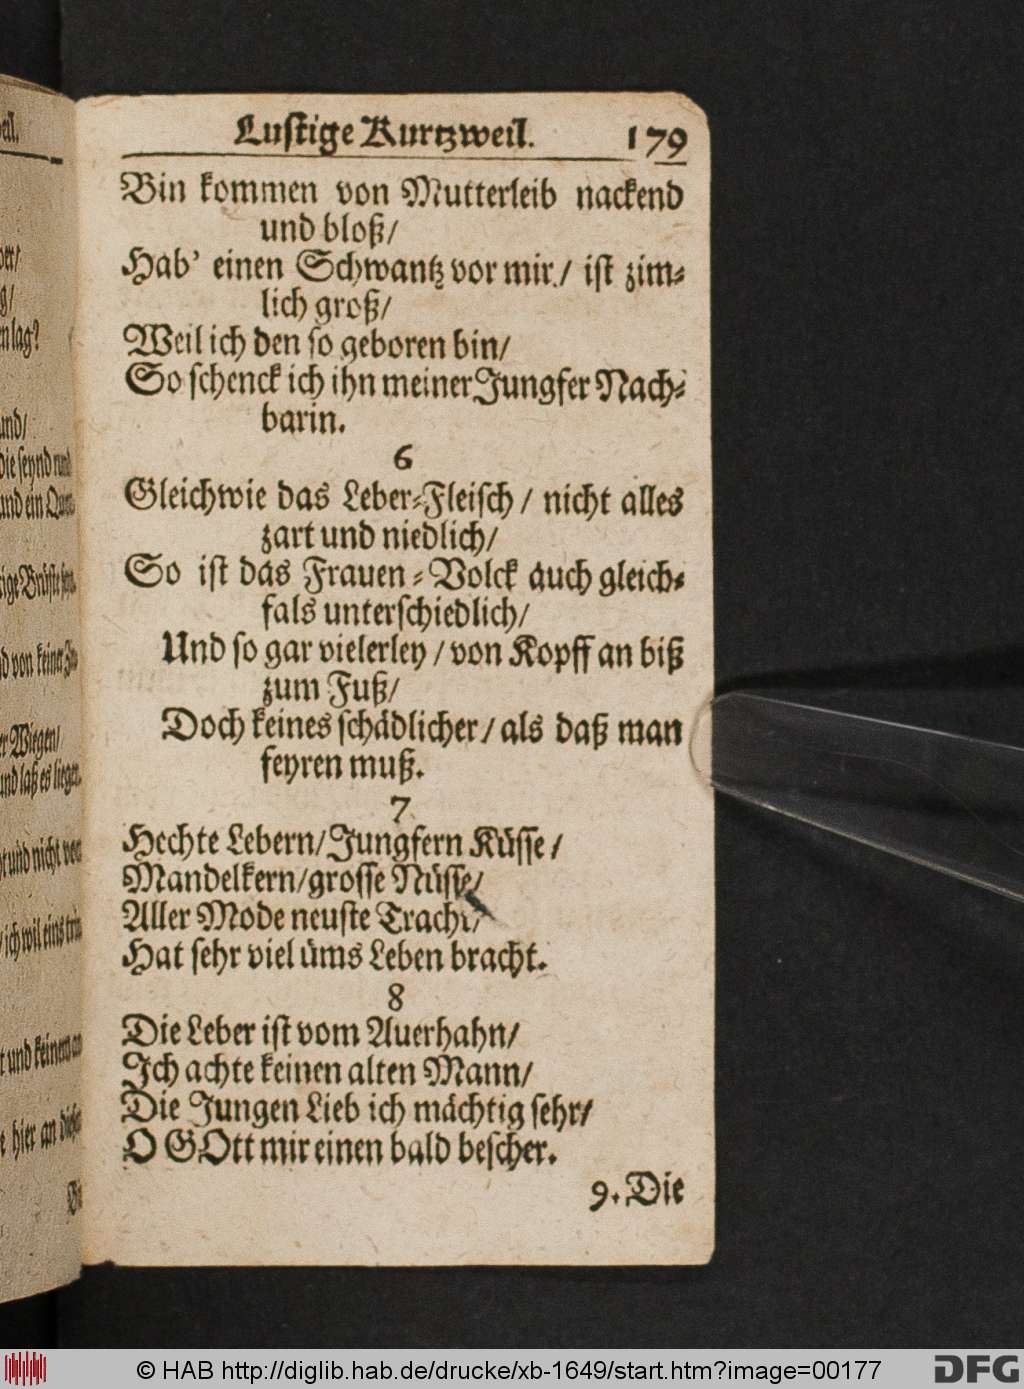 eil.
Lustige Kurtzweil. 179
Bin kommen von Mutterleib nackend
und bloß/
Hab' einen Schwantz vor mir/ ist zim-
lich groß/
Weil ich den so geboren bin/
So schenck ich ihn meiner Jungfer Nach-
barin.
6
Gleichwie das Leber-Fleisch / nicht alles
zart und niedlich/
So ist das Frauen-Volck auch gleich-
fals unterschiedlich/
Und so gar vielerley / von Kopff an biß
zum Fuß/
Doch keines schädlicher / als daß man
feyren muß.
7
Hechte Lebern/ Jungfern Küsse /
Mandelkern/ grosse Nüsse/
Aller Mode neuste Tracht/
Hat sehr viel üms Leben bracht.
8
Die Leber ist vom Auerhahn/
Ich achte keinen alten Mann/
Die Jungen Lieb ich mächtig sehr/
O GOtt mir einen bald bescher.
9. Die
lag?
und/
die seynd rund
und ein
von keiner
Wiegen/
und laß es liegen.
und nicht von
ich wil eins
und keinen
hier an
© HAB http://diglib.hab.de/drucke/xb-1649/start.htm?image=00177
DFG